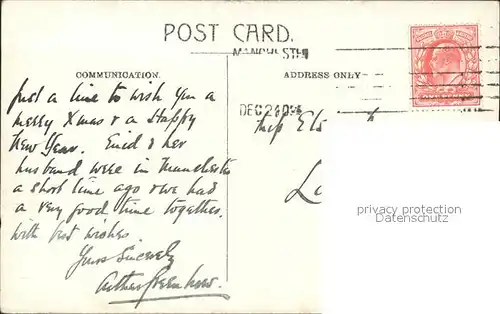 POST CARD.
MANCHESTE
COMMUNICATION.
ADDRESS ONLY
DEC 24 09
Just a line to wish you a
merry Xmas & a Happy
New Year. Enid & her
husband were in Manchester
a short time ago & we had
a very good time together.
With best wishes
Yours Sincerely
Arthur
Miss
privacy protection
Datenschutz